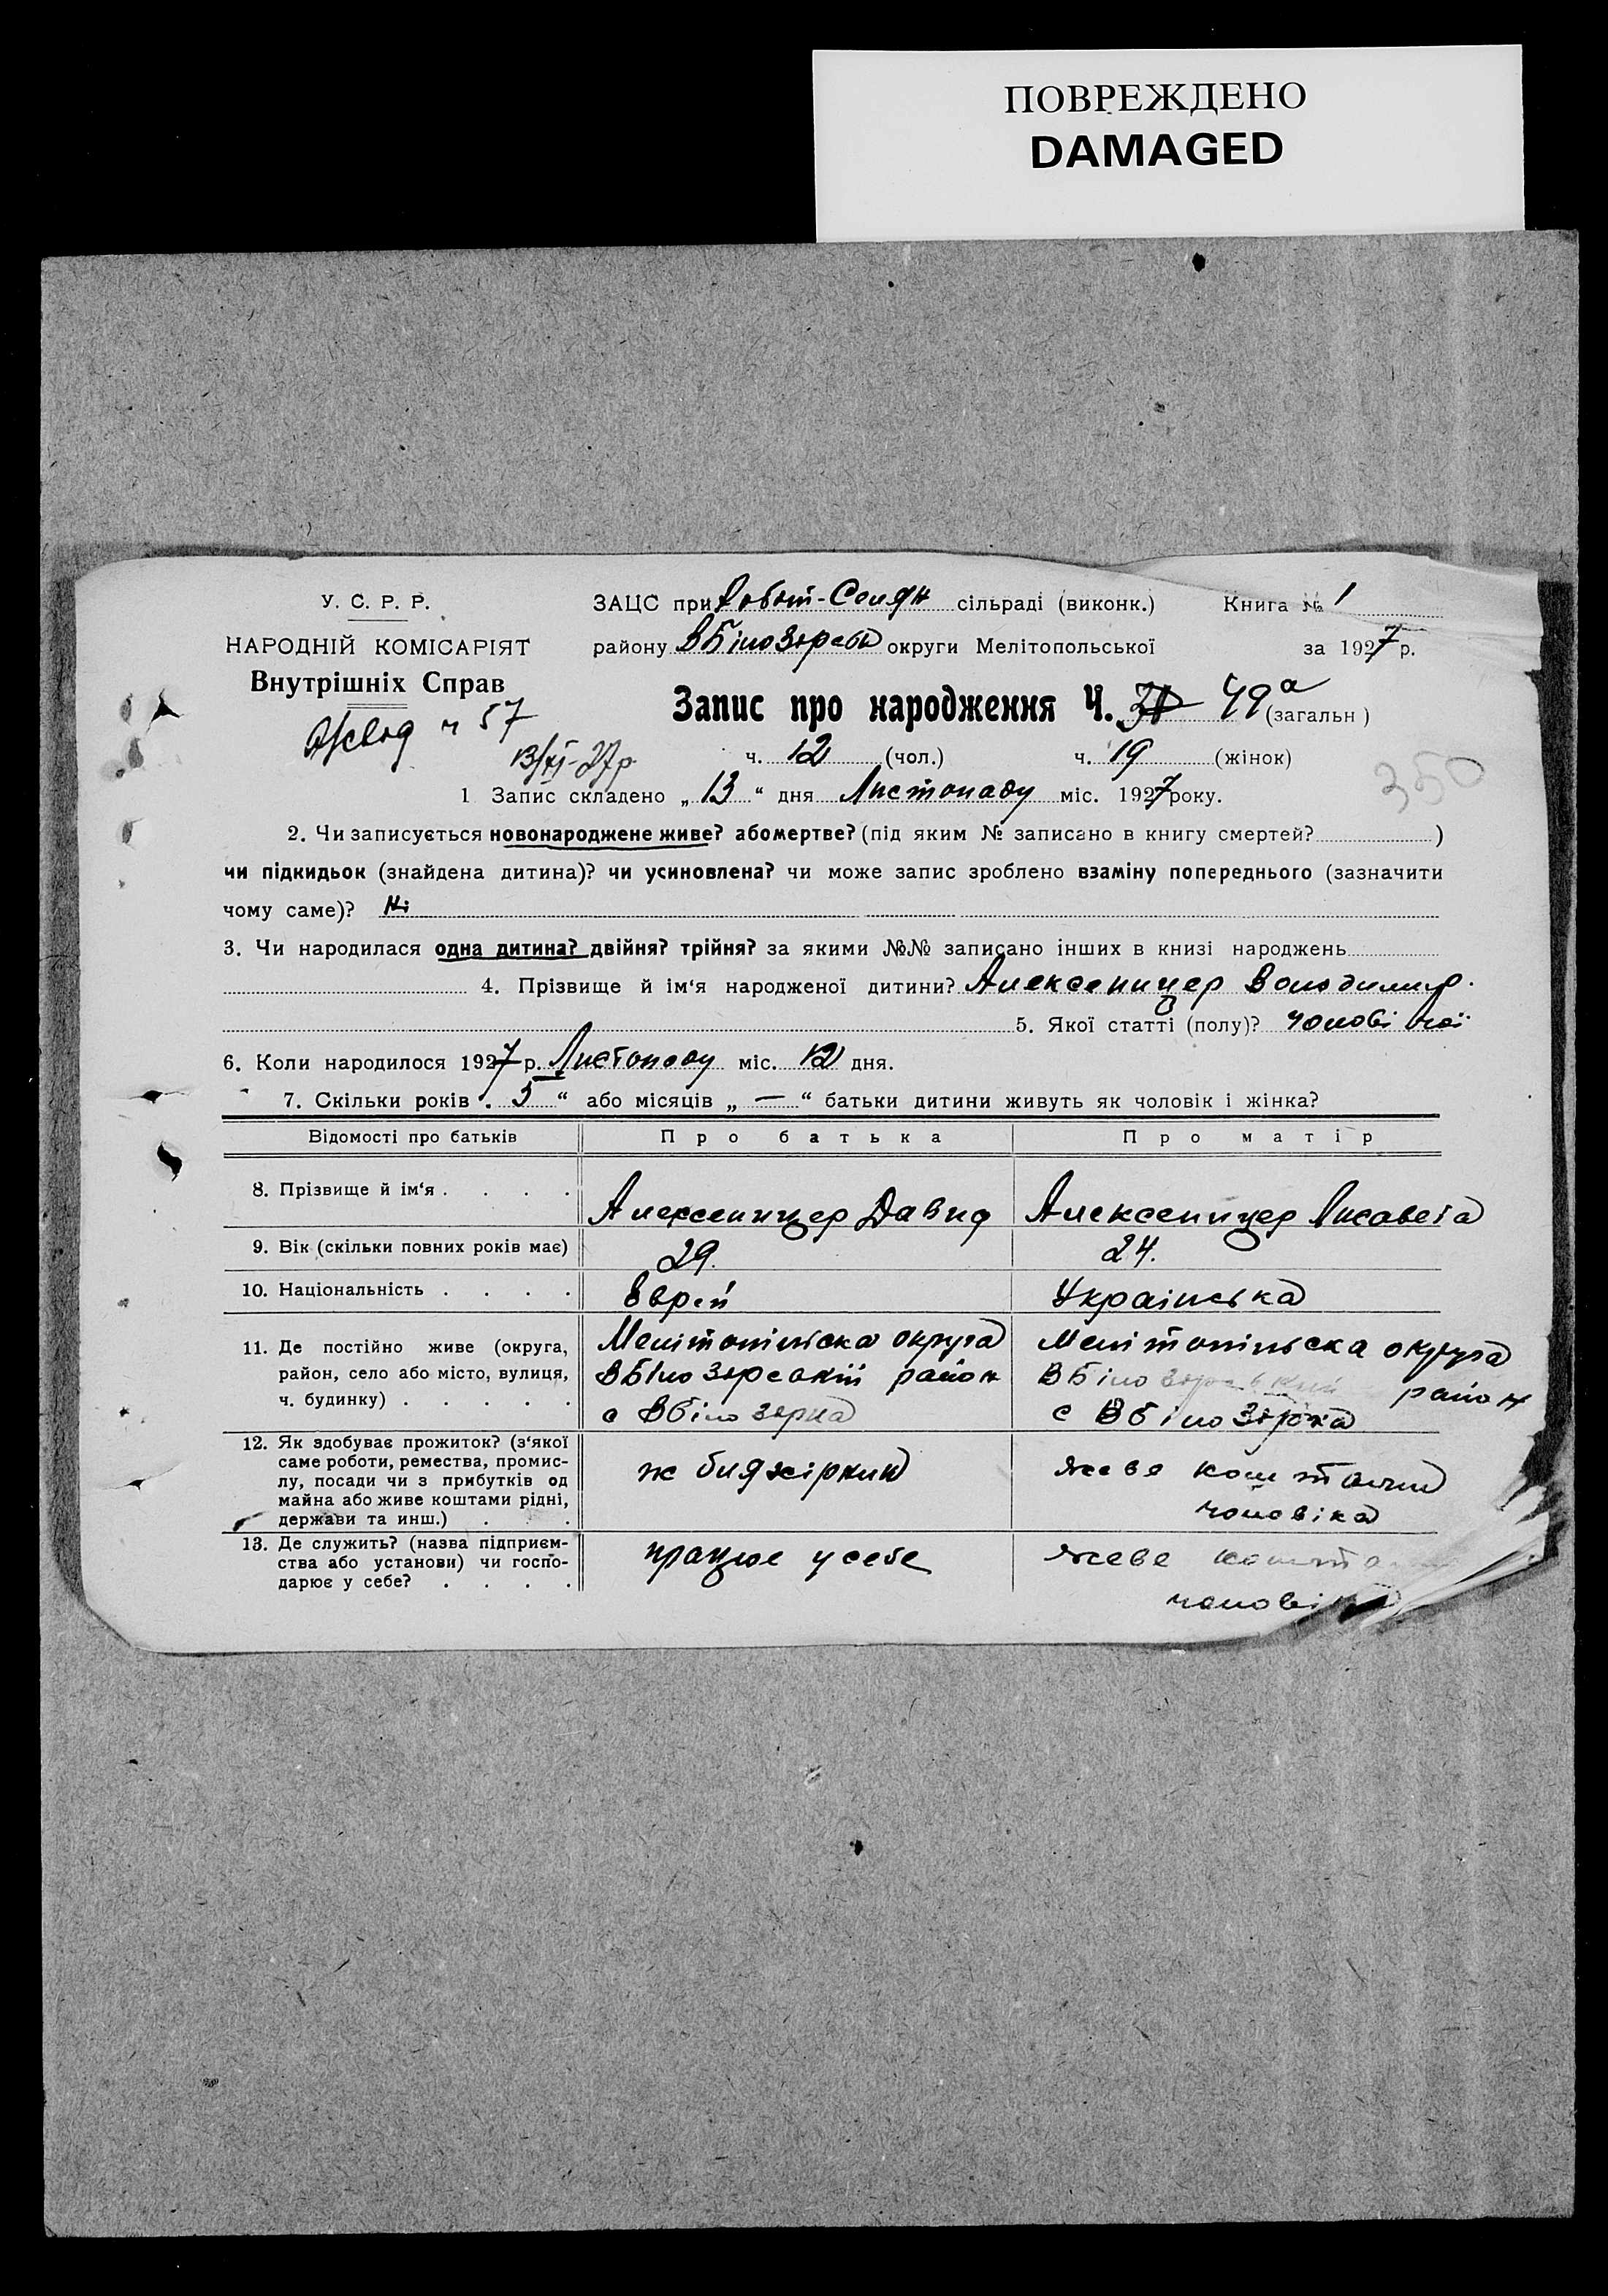 ПОВРЕЖДЕНО
DAMAGED
У. С. Р. Р.
НАРОДНІЙ КОМІСАРІЯТ
Внутрішніх Справ
ч 57
13/XI-27р
ЗАЦС при сільраді (виконк.) Книга № 1
району округи Мелітопольської за 1927 р.
Запис про народження Ч. 49а (загальн)
ч. 12 (чол.) ч. 19 (жінок)
350
1 Запис складено „ 13 “ дня Листопаду міс. 1927 року.
2. Чи записується новонароджене живе? або мертве? (під яким № записано в книгу смертей? )
чи підкидьок (знайдена дитина)? чи усиновлена? чи може запис зроблено взаміну попереднього (зазначити
чому саме)? Ні
3. Чи народилася одна дитина? двійня? трійня? за якими №№ записано інших в книзі народжень
4. Прізвище й ім‘я народженої дитини? Алексеницер Володимир.
5. Якої статті (полу)? чоловічої
6. Коли народилося 1927 р. Листопаду міс. 12 дня.
7. Скільки років „ 5 “ або місяців „ — “ батьки дитини живуть як чоловік і жінка?
Відомості про батьків Про батька Про матір
8. Прізвище й ім‘я . . . . Алексеницер Давид Алексеницер Лисавета
9. Вік (скільки повних років має) 29. 24.
10. Національність . . . . Єврей Українська
11. Де постійно живе (округа, Мелітопільска округа Мелітопільска округа
район, село або місто, вулиця, ВБілозерский район ВБілозерський район
ч. будинку) . . . . . с ВБілозерка с ВБілозерка
12. Як здобуває прожиток? (з‘якої
саме роботи, ремества, промис-
лу, посади чи з прибутків од живе коштами
майна або живе коштами рідні, чоловіка
держави та инш.) . . .
13. Де служить? (назва підприєм- працює у себе живе
ства або установи) чи госпо-
дарює у себе? . . . .